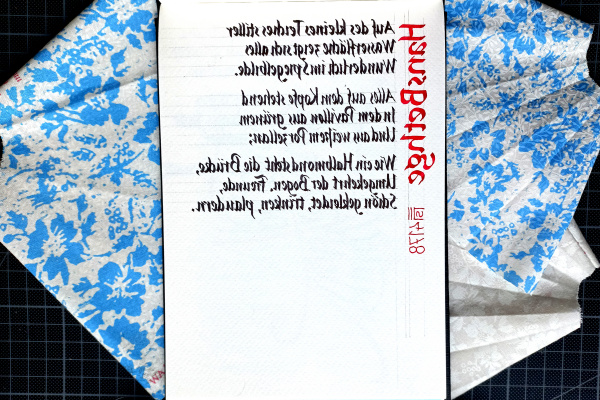 Auf des kleinen Teiches stiller
Wasserfläche zeigt sich alles
Wunderlich im Spiegelbilde.
Alles auf dem Kopfe stehend
In dem Pavillon aus grünem
Und aus weißem Porzellan;
Wie ein Halbmond steht die Brücke,
Umgekehrt der Bogen. Freunde,
Schön gekleidet, trinken, plaudern.
Hans Bethge